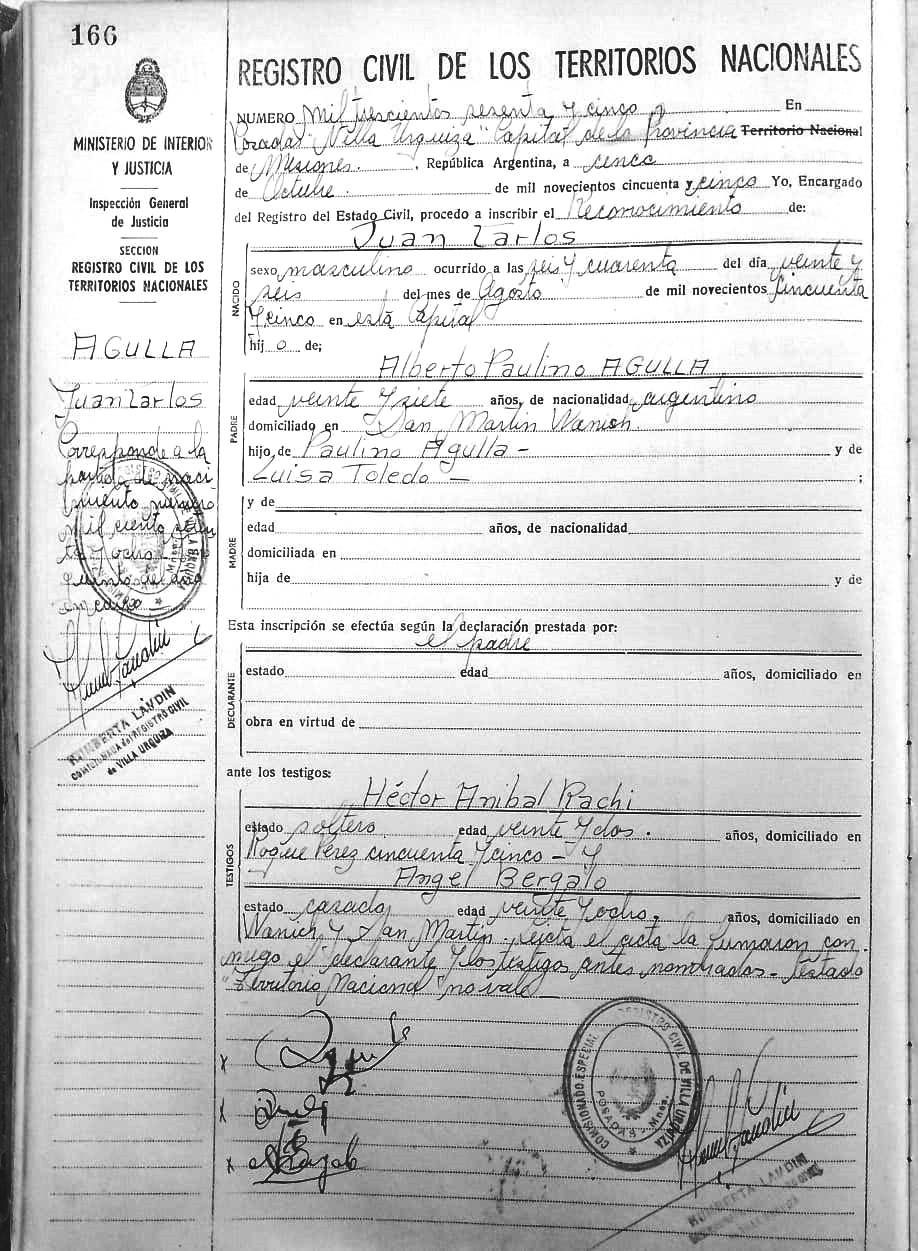 166
MINISTERIO DE INTERIOR
Y JUSTICIA
Inspección General
de Justicia
SECCION
REGISTRO CIVIL DE LOS
TERRITORIOS NACIONALES
AGULLA
Juan Carlos
Corresponde a la
partida de naci-
miento número
mil ciento
ta y ocho
REGISTRO CIVIL DE LOS TERRITORIOS NACIONALES
NUMERO Mil trescientos sesenta y cinco En
Posadas "Villa Urquiza" Capital de la Provincia Territorio Nacional
de Misiones. , República Argentina, a cinco
de Octubre. de mil novecientos cincuenta y cinco Yo, Encargado
del Registro del Estado Civil, procedo a inscribir el Reconocimiento de:
Juan Carlos
NACIDO
sexo masculino ocurrido a las seis y cuarenta del día veinte y
seis del mes de Agosto de mil novecientos cincuenta
y cinco en está Capital
hij o de;
Alberto Paulino AGULLA
PADRE
edad veinte y siete años, de nacionalidad argentino
domiciliado en San Martin Wanich.
hijo de Paulino Agulla - y de
Luisa Toledo - ;
MADRE
y de
edad años, de nacionalidad
domiciliada en
hija de y de
Esta inscripción se efectúa según la declaración prestada por:
el padre
DECLARANTE
estado edad años, domiciliado en
obra en virtud de
ante los testigos:
Héctor Anibal Rachi
TESTIGOS
estado soltero edad veinte y dos. años, domiciliado en
Roque Pérez cincuenta y cinco - y
Angel Bergalo
estado casado edad veinte y ocho, años, domiciliado en
Wanich y San Martin. Leída el acta la firmaron con-
migo el declarante y los testigos antes nombrados - Testado
"Territorio Nacional" no vale
HUMBERTA LAVDIN
COMISIONADA del REGISTRO CIVIL
de VILLA URQUIZA
COMISIONADO ESPECIAL REGISTRO CIVIL DE VILLA URQUIZA
POSADAS - Mnes.
HUMBERTA LAVDIN